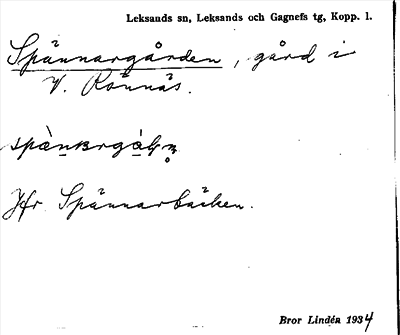 Leksands sn, Leksands och Gagnefs tg, Kopp. l.
Spännargården, gård i
V. Rönnäs.
Jfr Spännarbäcken.
Bror Lindén 1934